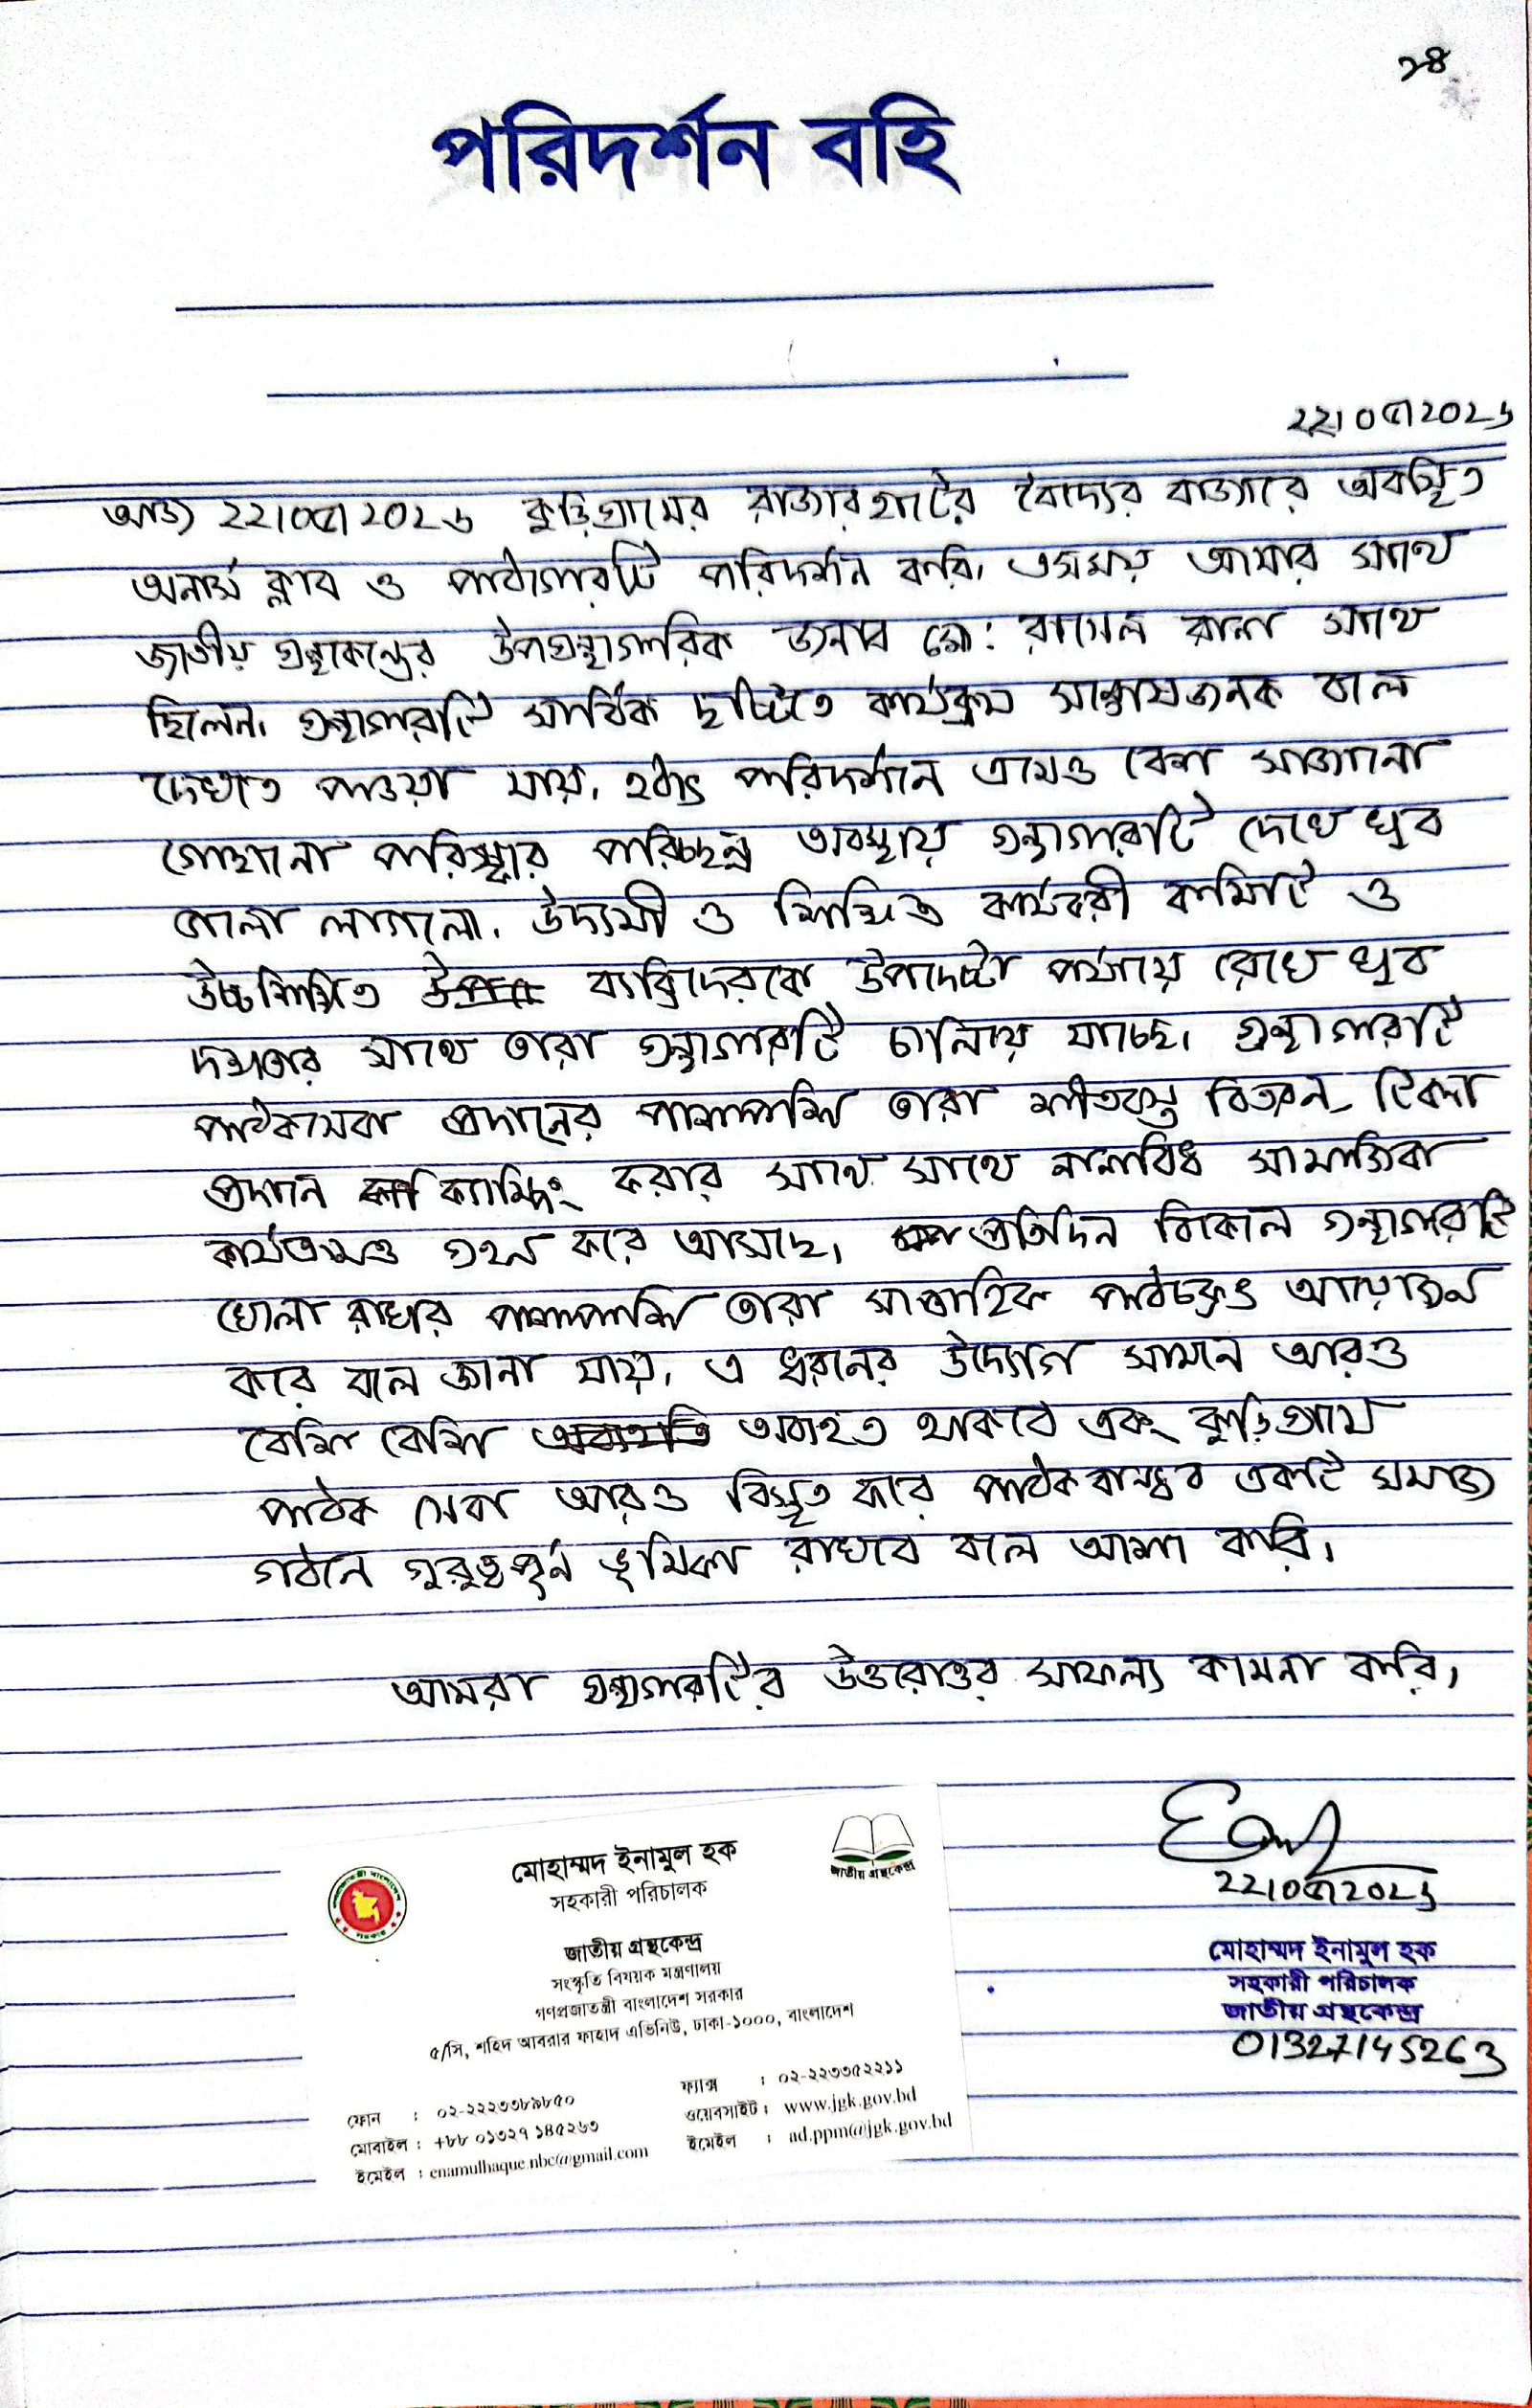 ১৪
পরিদর্শন বহি
২২/০৫/২০২৬
আজ ২২/০৫/২০২৬ কুড়িগ্রামের রাজারহাটের বৈদ্যের বাজারে অবস্থিত
অনার্স ক্লাব ও পাঠাগারটি পরিদর্শন করি। এসময় আমার সাথে
জাতীয় গ্রন্থকেন্দ্রের উপগ্রন্থাগারিক জনাব মো: রাসেল রানা সাথে
ছিলেন। গ্রন্থাগারটি সার্বিক দৃষ্টিতে কার্যক্রম সন্তোষজনক বলে
দেখতে পাওয়া যায়। হঠাৎ পরিদর্শনে এসেও বেশ সাজানো
গোছানো পরিষ্কার পরিচ্ছন্ন অবস্থায় গ্রন্থাগারটি দেখে খুব
ভালো লাগলো। উদ্যমী ও শিক্ষিত কার্যকরী কমিটি ও
উচ্চশিক্ষিত ব্যক্তিদেরকে উপদেষ্টা পর্যায়ে রেখে খুব
দক্ষতার সাথে তারা গ্রন্থাগারটি চালিয়ে যাচ্ছে। গ্রন্থাগারটি
পাঠকসেবা প্রদানের পাশাপাশি তারা শীতবস্ত্র বিতরন, টিকা
প্রদান ক্যাম্পিং করার সাথে সাথে নানাবিধ সামাজিক
কার্যক্রমও গ্রহন করে আসছে। প্রতিদিন বিকালে গ্রন্থাগারটি
খোলা রাখার পাশাপাশি তারা সাপ্তাহিক পাঠচক্রও আয়োজন
করে বলে জানা যায়। এ ধরনের উদ্যোগ সামনে আরও
বেশি বেশি অব্যহত থাকবে এবং কুড়িগ্রামে
পাঠক সেবা আরও বিস্তৃত করে পাঠকবান্ধব একটি সমাজ
গঠনে গুরুত্বপূর্ন ভূমিকা রাখবে বলে আশা করি।
আমরা গ্রন্থাগারটির উত্তরোত্তর সাফল্য কামনা করি।
২২/০৫/২০২৬
মোহাম্মদ ইনামুল হক
সহকারী পরিচালক
জাতীয় গ্রন্থকেন্দ্র
01327145263
মোহাম্মদ ইনামুল হক
সহকারী পরিচালক
জাতীয় গ্রন্থকেন্দ্র
জাতীয় গ্রন্থকেন্দ্র
সংস্কৃতি বিষয়ক মন্ত্রণালয়
গণপ্রজাতন্ত্রী বাংলাদেশ সরকার
৫/সি, শহিদ আবরার ফাহাদ এভিনিউ, ঢাকা-১০০০, বাংলাদেশ
ফোন : ০২-২২৩৩৮৯৮৫০
মোবাইল : +৮৮ ০১৩২৭ ১৪৫২৬৩
ইমেইল : enamulhaque.nbc@gmail.com
ফ্যাক্স : ০২-২২৩৩৫২২১১
ওয়েবসাইট : www.jgk.gov.bd
ইমেইল : ad.ppm@jgk.gov.bd